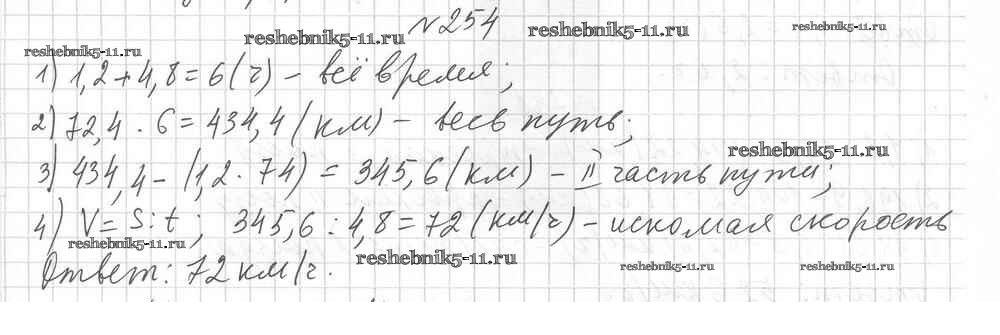 №254
reshebnik5-11.ru
reshebnik5-11.ru
reshebnik5-11.ru
reshebnik5-11.ru
1) 1,2+4,8=6(ч) - всё время;
2) 72,4 · 6 = 434,4 (км) - весь путь;
reshebnik5-11.ru
3) 434,4 - (1,2 · 74) = 345,6 (км) - II часть пути;
4) V = S:t; 345,6 : 4,8 = 72 (км/ч) - искомая скорость
reshebnik5-11.ru
Ответ: 72 км/ч.
reshebnik5-11.ru
reshebnik5-11.ru
reshebnik5-11.ru